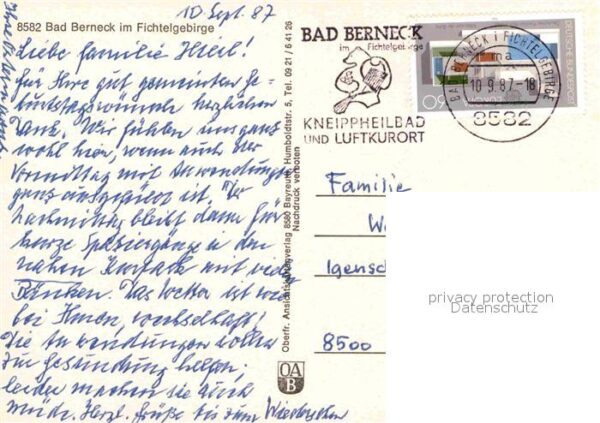 10 Sept. 87
8582 Bad Berneck im Fichtelgebirge
Liebe Familie
für Ihre gut gemeinten Ge-
burtstagswünsche herzlichen
Dank. Wir fühlen uns ganz
wohl hier, wenn auch der
Vormittag mit Anwendungen
ganz ausgefüllt ist. Der
Nachmittag bleibt dann für
kurze Spaziergänge in den
nahen Kurpark mit vielen
Bänken. Das Wetter ist wie
bei Ihnen, wechselhaft!
Die Anwendungen sollen
zur Gesundung helfen,
leider machen sie auch
müde. Herzl. Grüße bis zum Wiedersehen
Oberfr. Ansichtskartenverlag 8580 Bayreuth, Humboldtstr. 5, Tel. 09 21 / 6 41 26
Nachdruck verboten
OA
B
BAD BERNECK
im Fichtelgebirge
KNEIPPHEILBAD
UND LUFTKURORT
BAD BERNECK I FICHTELGEBIRGE
ma
10.9.87-18
8582
DEUTSCHE BUNDESPOST
60
Familie
Igensd
8500
privacy protection
Datenschutz